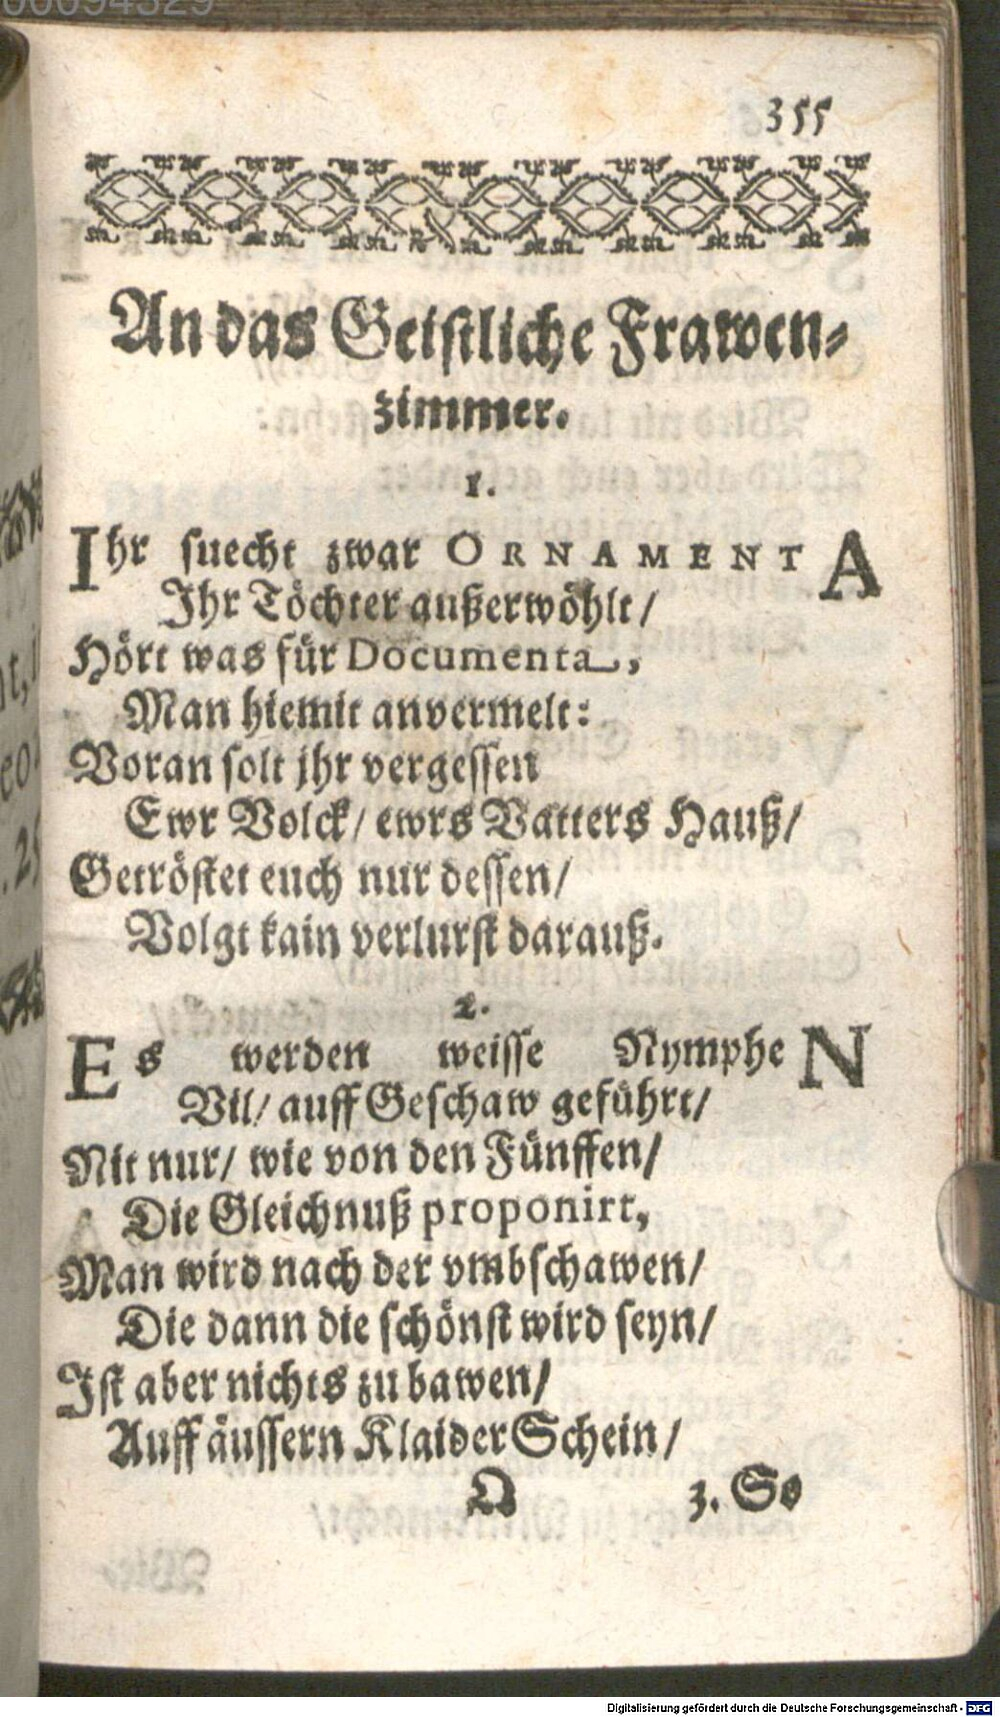 355
An das Geistliche Frawen-
zimmer.
1.
Ihr suecht zwar ORNAMENTA
Ihr Töchter außerwöhlt/
Hört was für Documenta,
Man hiemit anvermelt:
Voran solt jhr vergessen
Ewr Volck/ ewrs Vatters Hauß/
Getröstet euch nur dessen/
Volgt kain verlurst darauß.
2.
Es werden weisse NympheN
Vil/ auff Geschaw geführt/
Nit nur/ wie von den Fünffen/
Die Gleichnuß proponirt,
Man wird nach der vmbschawen/
Die dann die schönst wird seyn/
Ist aber nichts zu bawen/
Auff äussern Klaider Schein/
Q 3. So
Digitalisierung gefördert durch die Deutsche Forschungsgemeinschaft - DFG